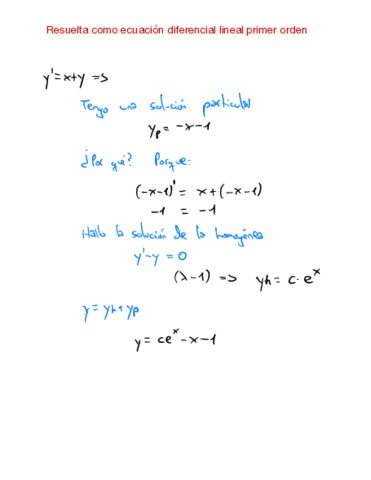 Resuelta como ecuación diferencial lineal primer orden
y' = x+y =>
Tengo una solución particular
yp = -x-1
¿Por qué? Porque:
(-x-1)' = x+(-x-1)
-1 = -1
Hallo la solución de la homogénea
y'-y = 0
(λ-1) => yh = c·e^x
y = yh+yp
y = ce^x-x-1